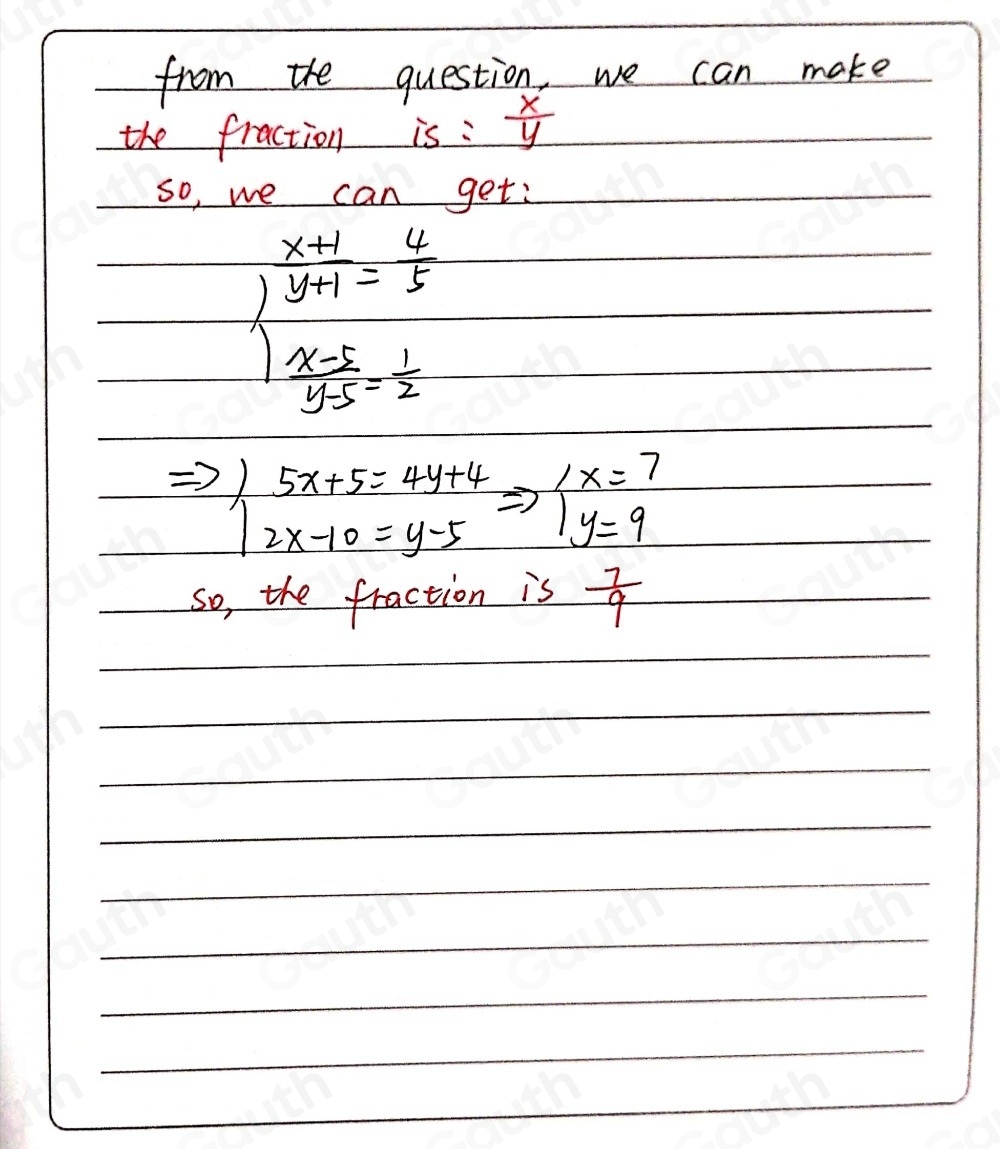 from the question, we can make
the fraction is: x/y
so, we can get:
x+1/y+1 = 4/5
x-5/y-5 = 1/2
=> 5x+5 = 4y+4 => x = 7
2x-10 = y-5 y = 9
so, the fraction is 7/9
Gauth